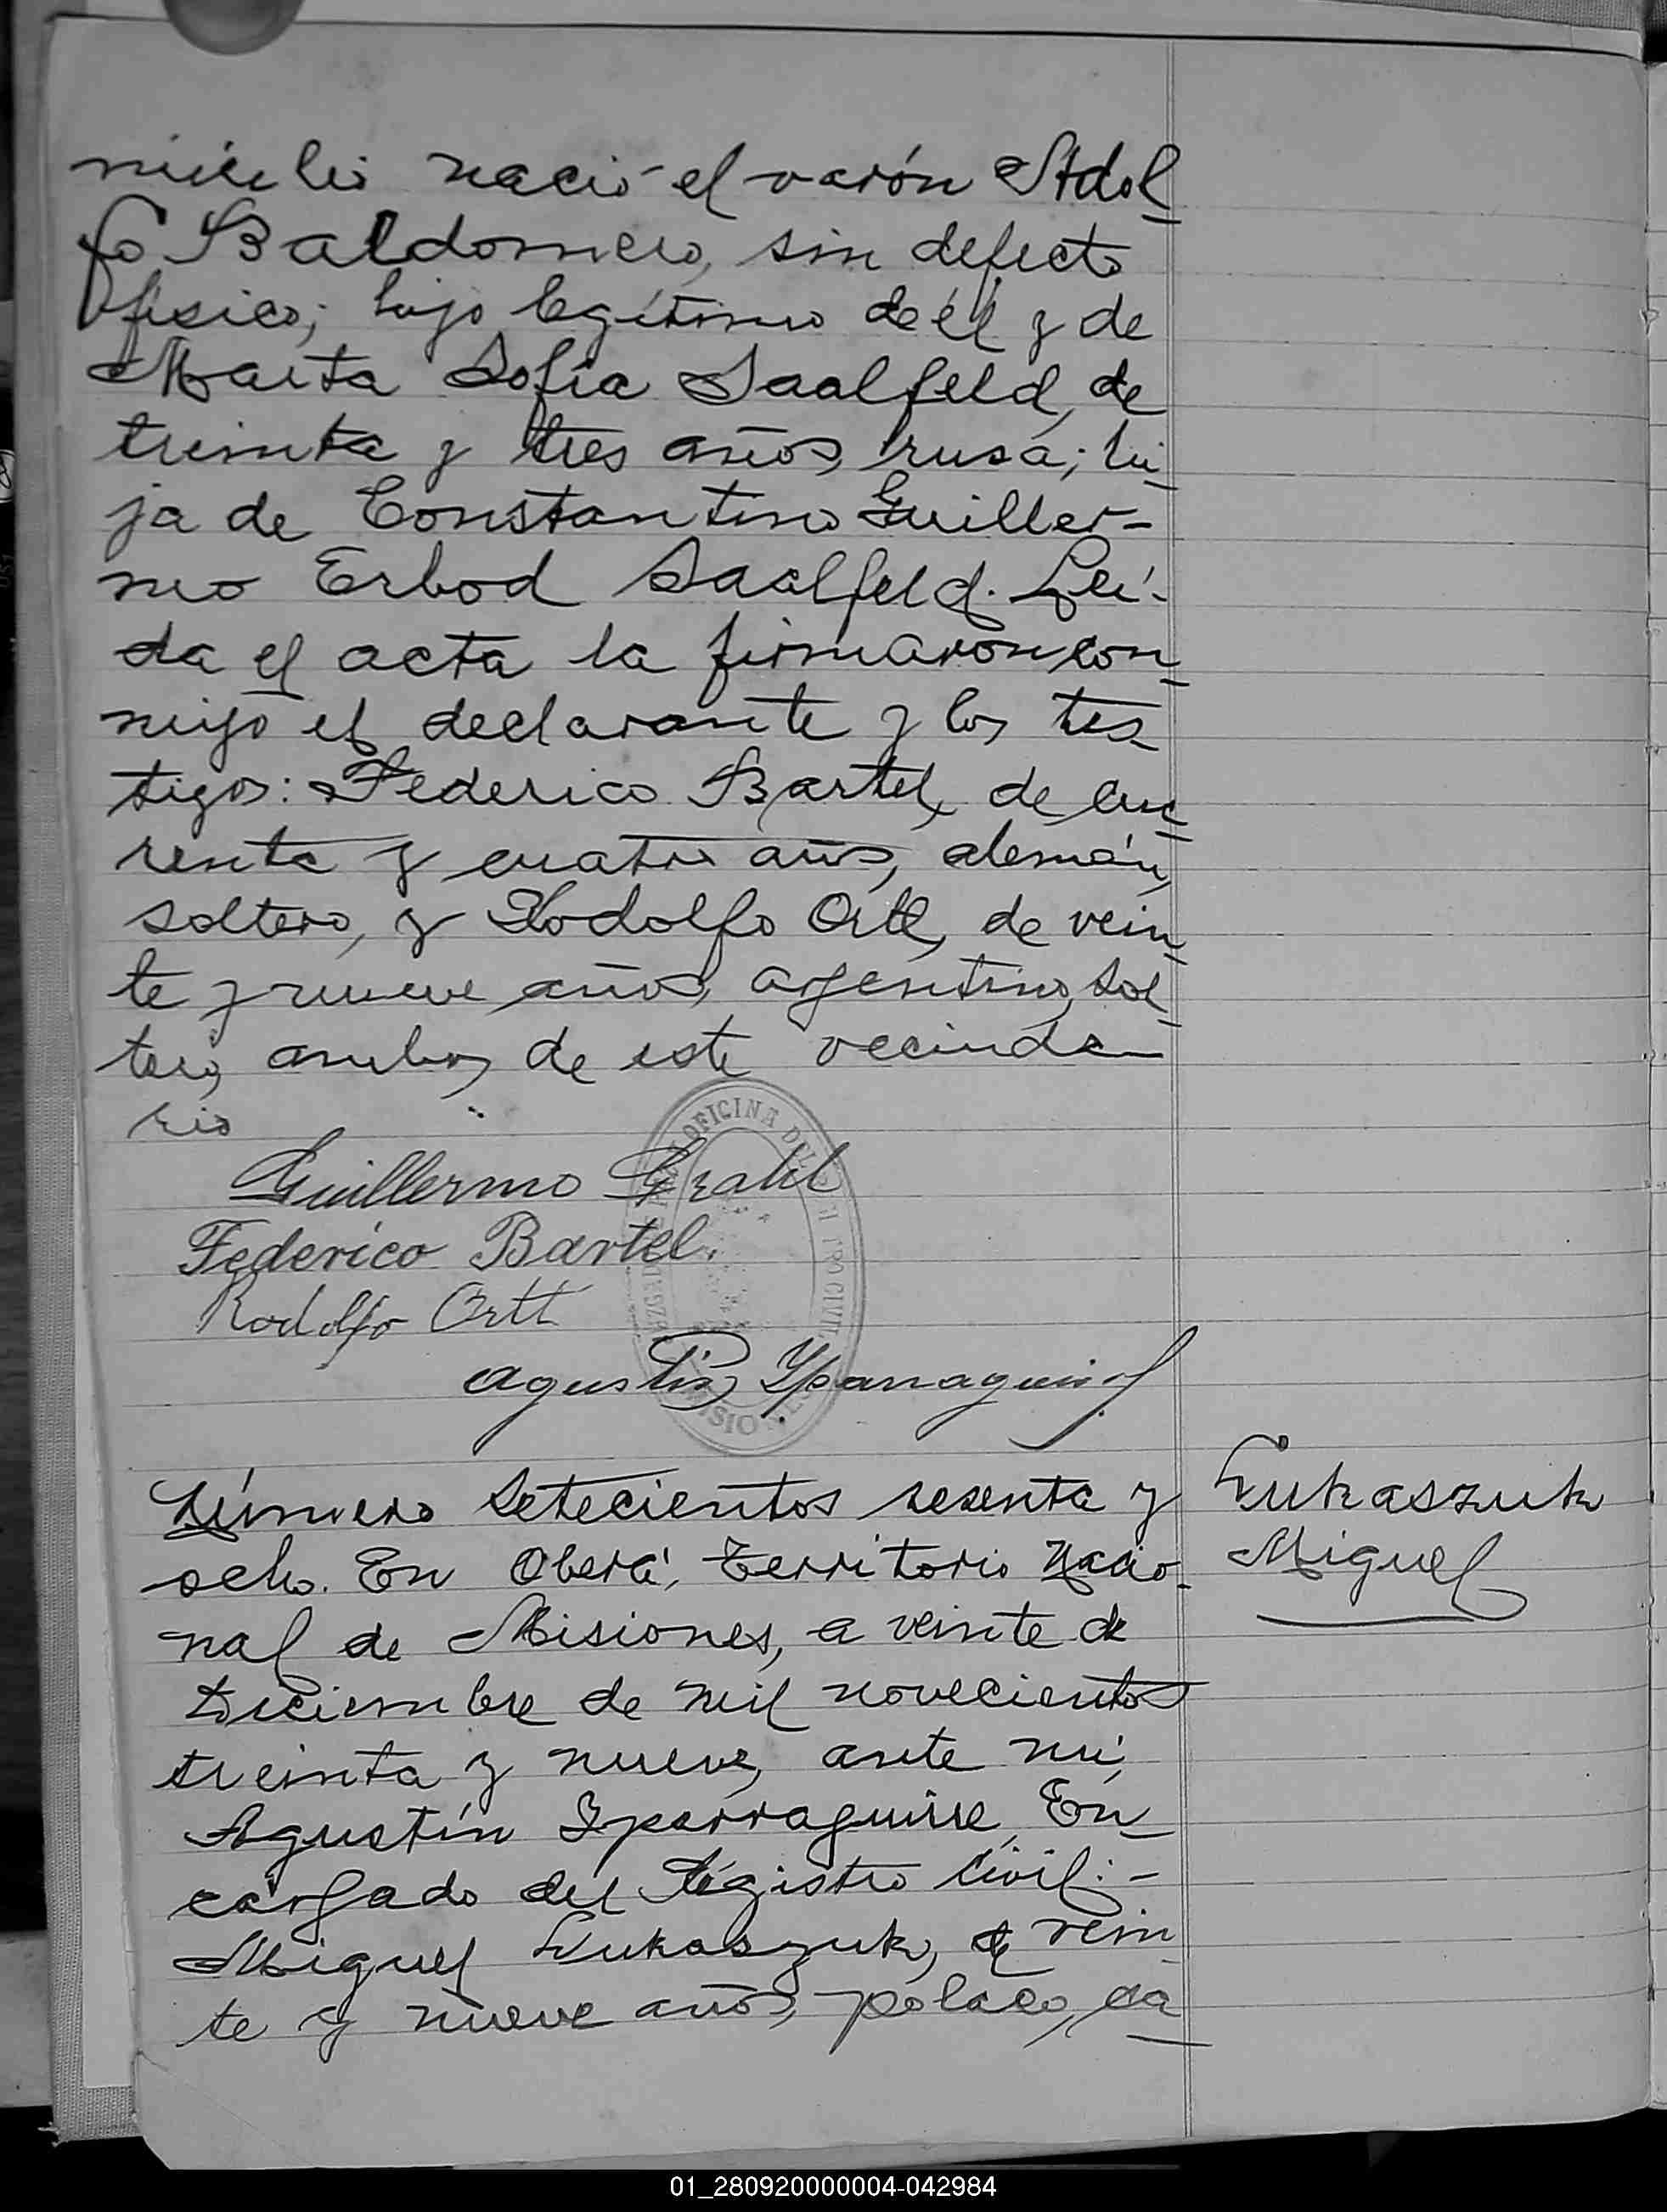 micilio nació el varón Adol-
fo Baldomero, sin defecto
físico; hijo legítimo de él y de
Marta Sofía Saalfeld, de
treinta y tres años, rusa; hi-
ja de Constantino Guiller-
mo Erbod Saalfeld. Leí-
da el acta la firmaron con-
migo el declarante y los tes-
tigos: Federico Bartel, de cua-
renta y cuatro años, alemán,
soltero, y Rodolfo Ortt, de vein-
te y nueve años, argentino, sol-
tero, ambos de este vecinda-
rio
OFICINA DEL REGISTRO CIVIL
MISIONES
Guillermo Grahl
Federico Bartel.
Rodolfo Ortt
Agustín Yparraguirre
Número setecientos sesenta y
ocho. En Oberá, Territorio Nacio-
nal de Misiones, a veinte de
Diciembre de mil novecientos
treinta y nueve, ante mí,
Agustín Iparraguirre, En-
cargado del Registro Civil:-
Miguel Lukaszuk, de vein-
te y nueve años, polaco, ca-
Lukaszuk
Miguel
01_280920000004-042984